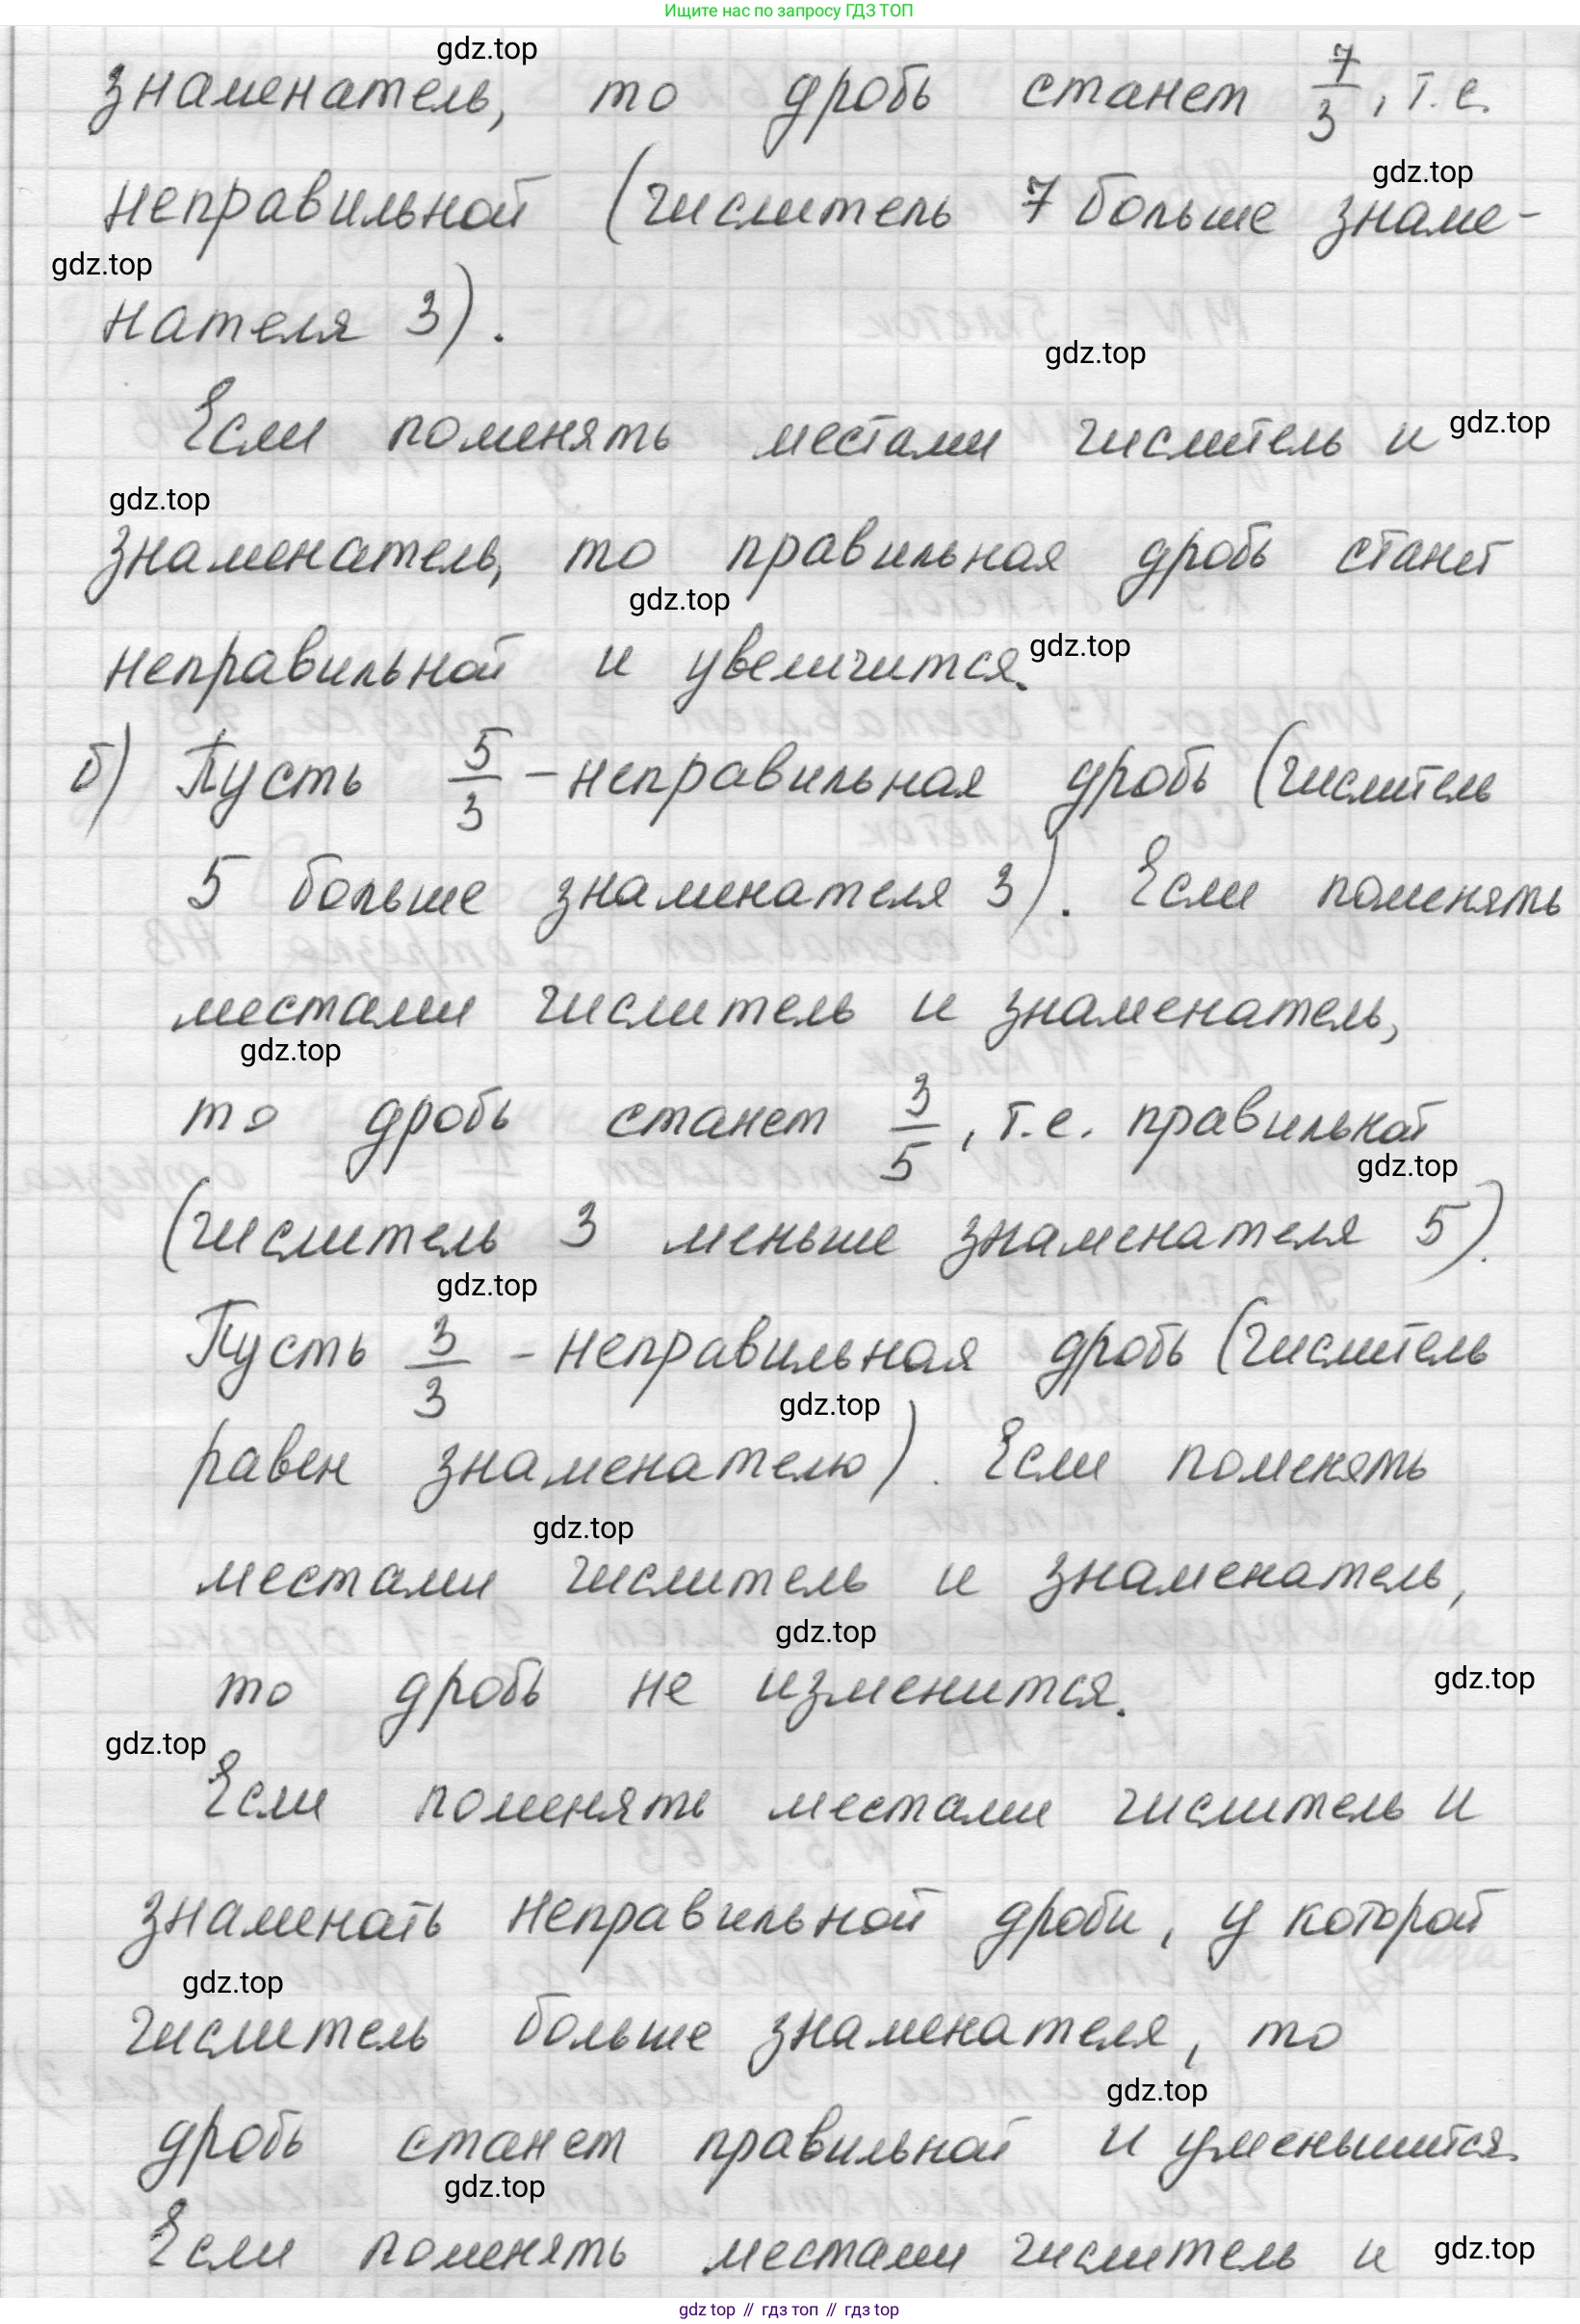 Ищите нас по запросу ГДЗ ТОП
gdz.top
знаменатель, то дробь станет 7/3, т.е.
gdz.top
неправильной (числитель 7 больше знаме-
gdz.top
нателя 3).
gdz.top
Если поменять местами числитель и
gdz.top
gdz.top
знаменатель, то правильная дробь станет
gdz.top
неправильной и увеличится.
gdz.top
б) Пусть 5/3 - неправильная дробь (числитель
5 больше знаменателя 3). Если поменять
местами числитель и знаменатель,
gdz.top
то дробь станет 3/5, т.е. правильной
gdz.top
(числитель 3 меньше знаменателя 5).
gdz.top
Пусть 3/3 - неправильная дробь (числитель
gdz.top
равен знаменателю). Если поменять
gdz.top
местами числитель и знаменатель,
gdz.top
то дробь не изменится.
gdz.top
gdz.top
Если поменять местами числитель и
знаменать неправильной дроби, у которой
gdz.top
числитель больше знаменателя, то
gdz.top
дробь станет правильной и уменьшится.
gdz.top
Если поменять местами числитель и
gdz.top
gdz top // гдз топ // гдз top